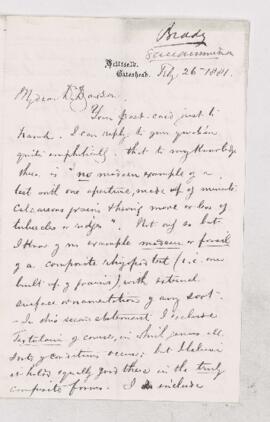 Brady
Saccammina
Hillfield,
Gateshead.
Feby 26th 1881.
My dear Dr Dawson,
Your post-card just to
hand. I can reply to your question
quite emphatically, that to my knowledge
there is "no modern example of a
test with one aperture, made up of minute
calcareous grains & having more or less of
tubercles or ridges". Not only so but
I know of no example modern or fossil
of a composite rhizopod test (i.e. one
built up of grains), with external
surface ornamentation of any sort.
In this second statement I exclude
Textularia of course, in which genus all
sorts of conditions occur; but I believe
it holds equally good there in the truly
composite forms. I include